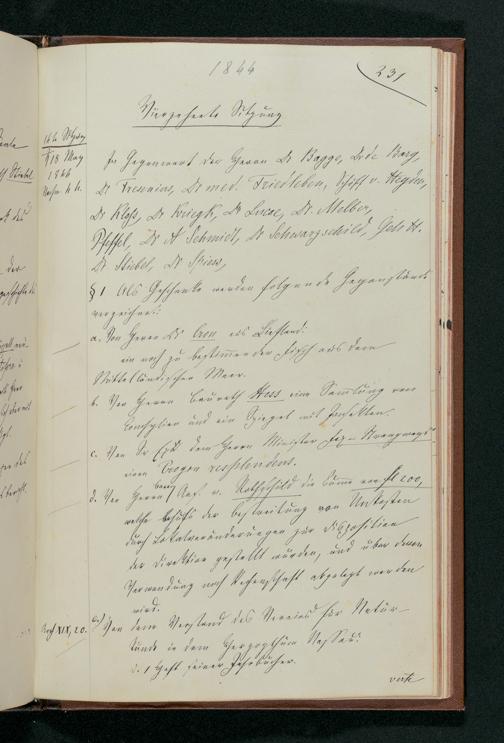 1844
231
Vierzehnte Sitzung
18 May
1844
In Gegenwart der Herren Dr Bagge, Berg,
Dr Fresenius, Dr med. Friedleben, Schöff v. Heyden,
Dr Kloß, Dr Kriegk, Dr Lucae, Dr. Melber,
Pfeffel, Dr A Schmidt, Dr Schwarzschild, Geh. R.
Dr Stiebel, Dr Spiess,
§ 1 Als Geschenke werden folgende Gegenstände
verzeichnet:
a. Von Herrn Dr Cron aus Liefland:
ein noch zu bestimmender Fisch aus dem
Mittelländischen Meer.
b. Von Herrn Baurath Hess eine Sammlung von
Conchylien und ein Spiegel mit Insekten.
c. Von Sr Exc. dem Herrn Minister
einen Trogon resplendens.
d. Von Herrn Baron v. Rothschild die Summe von fl 200,
welche behufs der Bestreitung von Unkosten
durch Lokalveränderungen zur Disposition
der Direktion gestellt wurden, und über deren
Verwendung noch Rechenschaft abgelegt werden
wird.
XIX, 20.
e) Von dem Vorstand des Vereins für Natur-
kunde in dem Herzogthum Nassau:
d. 1 Heft seiner Jahrbücher.
verte